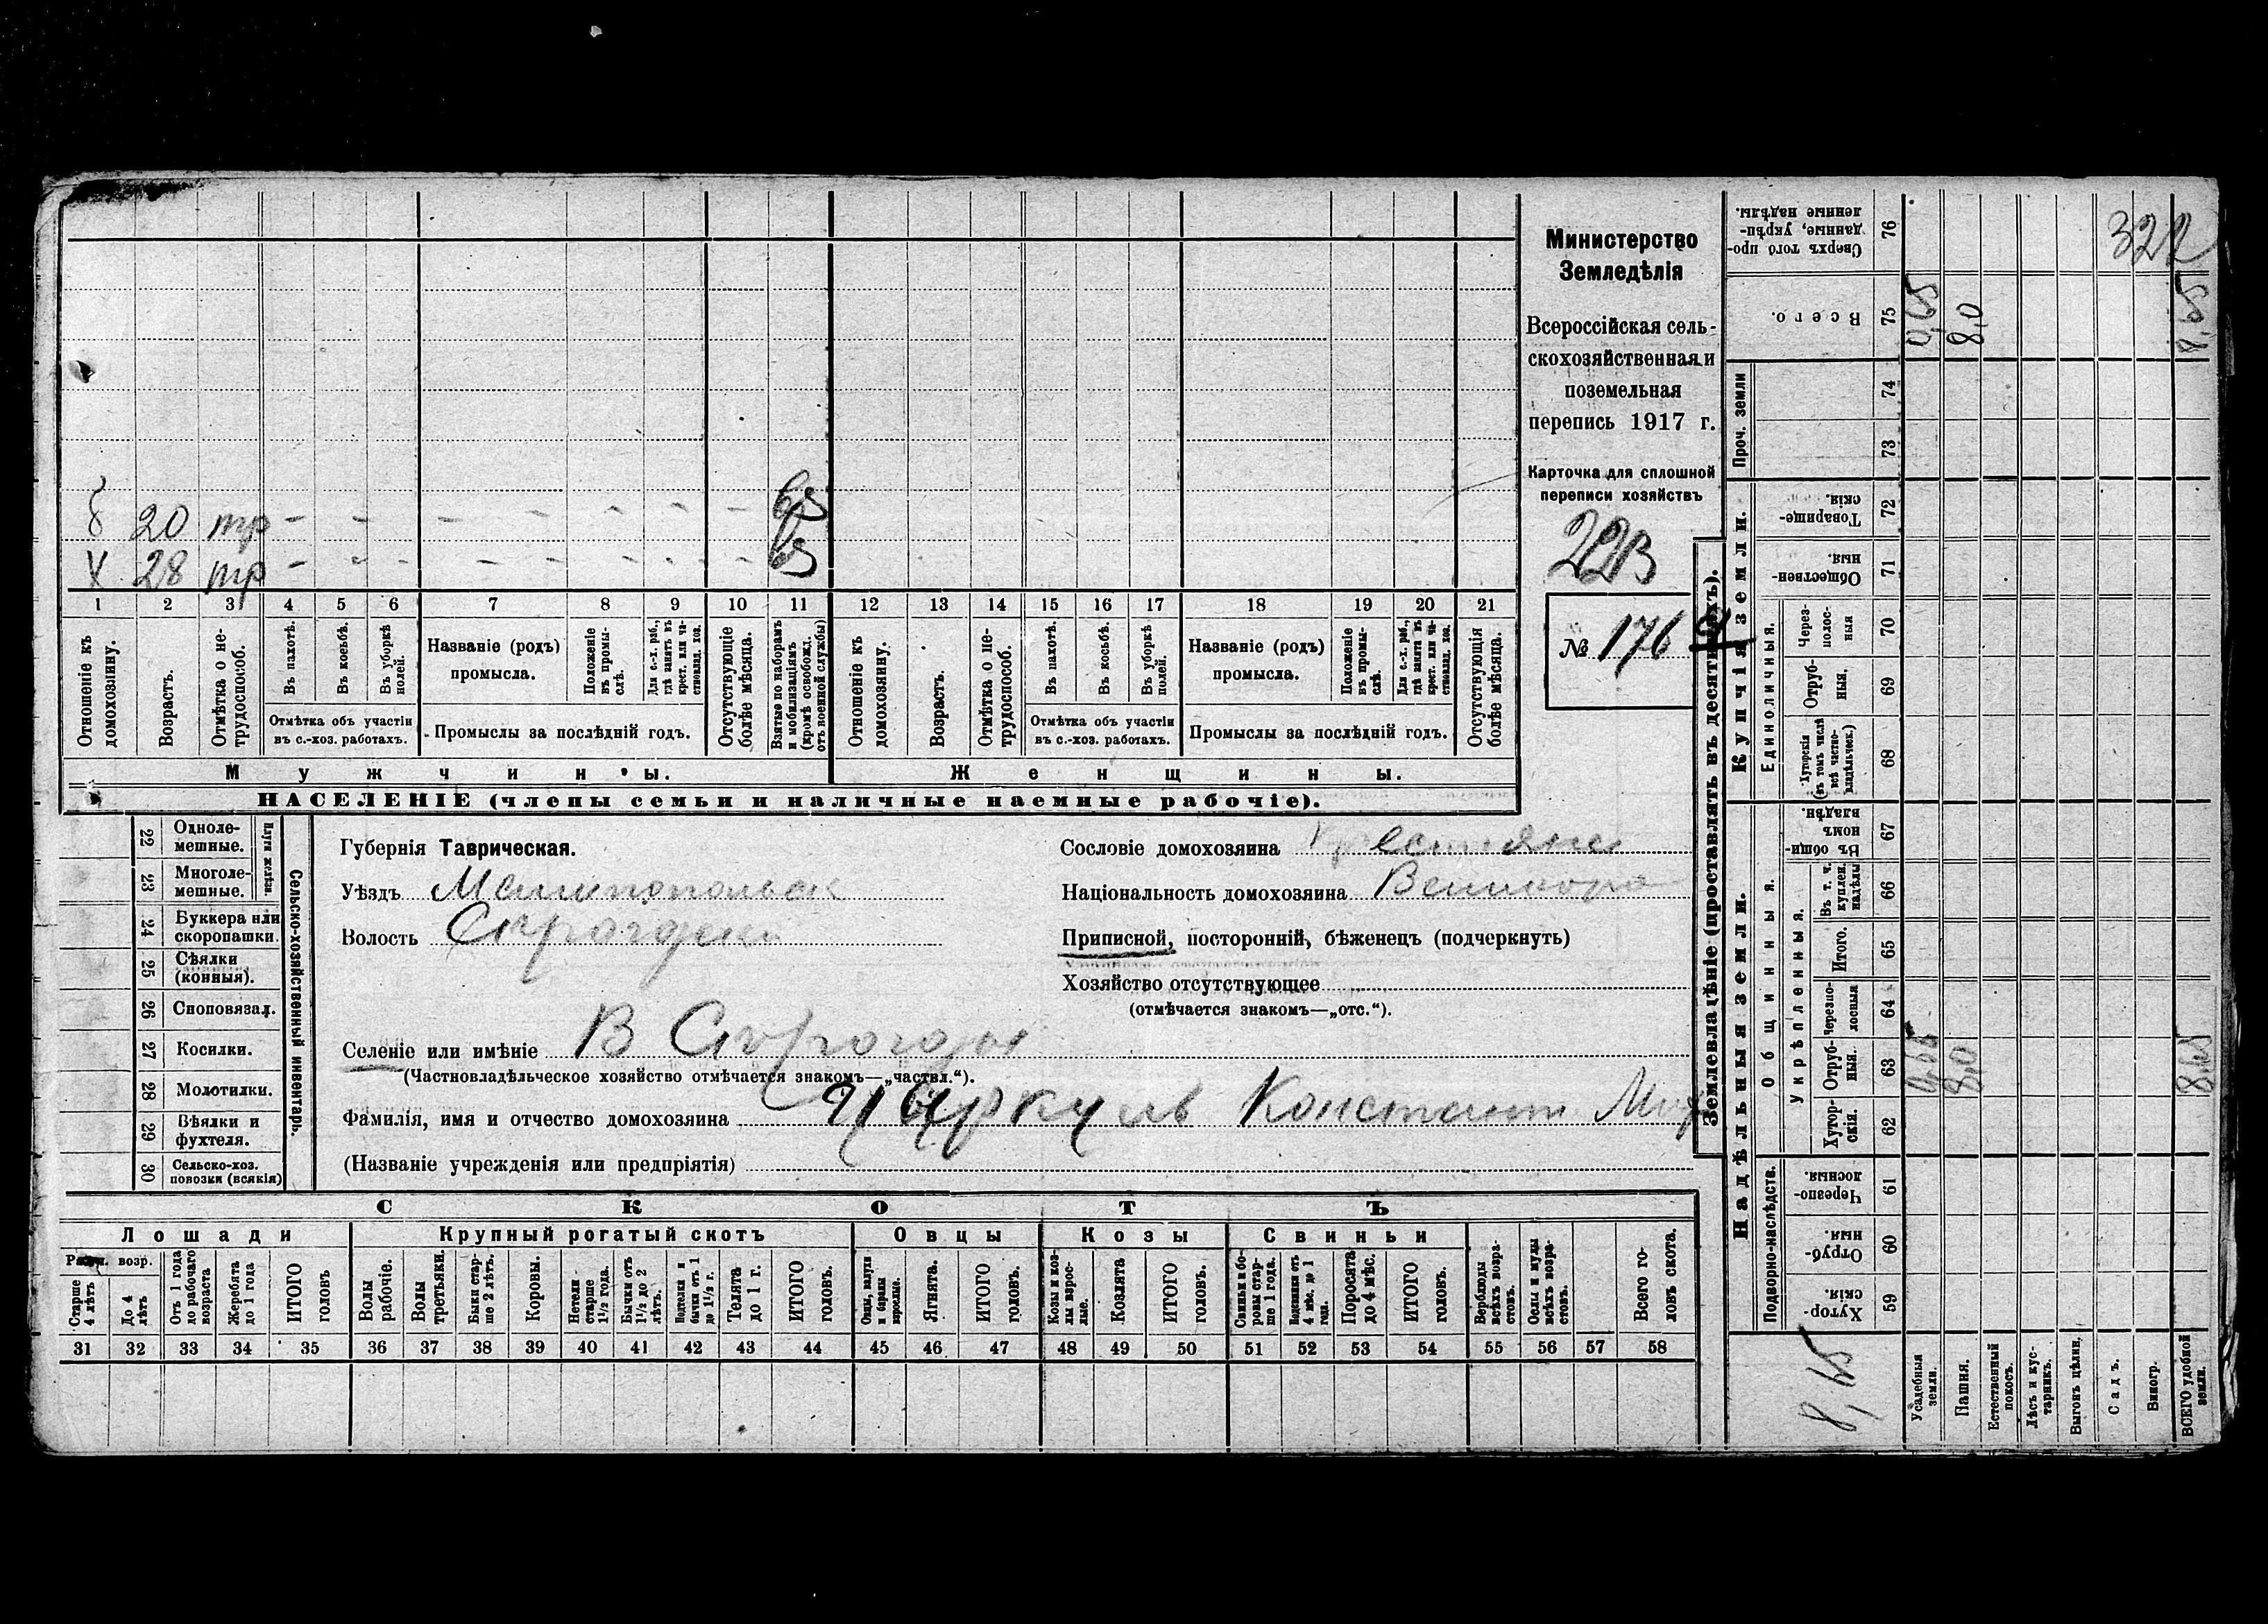 б 20 тр - - - - - - - вз
Х 28 тр - - - - - - - вз
1 2 3 4 5 6 7 8 9 10 11 12 13 14 15 16 17 18 19 20 21
Отношеніе къ домохозяину.
Возрастъ.
Отмѣтка о не-трудоспособ.
Въ пахотѣ.
Въ косьбѣ.
Въ уборкѣ полей.
Отмѣтка объ участіи въ с.-хоз. работахъ.
Названіе (родъ) промысла.
Положеніе въ промы-слѣ.
Для с.-х. раб., гдѣ занятъ въ крест. или ча-стновлад. хоз.
Промыслы за послѣдній годъ.
Отсутствующіе болѣе мѣсяца.
Взятые по наборамъ и мобилизаціямъ (кромѣ освобожд. отъ военной службы)
Отношеніе къ домохозяину.
Возрастъ.
Отмѣтка о не-трудоспособ.
Въ пахотѣ.
Въ косьбѣ.
Въ уборкѣ полей.
Отмѣтка объ участіи въ с.-хоз. работахъ.
Названіе (родъ) промысла.
Положеніе въ промы-слѣ.
Для с.-х. раб., гдѣ занята въ крест. или ча-стновлад. хоз.
Промыслы за послѣдній годъ.
Отсутствующія болѣе мѣсяца.
Мужчины. Женщины.
НАСЕЛЕНІЕ (члены семьи и наличные наемные рабочіе).
Министерство
Земледѣлія
Всероссійская сель-
скохозяйственная и
поземельная
перепись 1917 г.
Карточка для сплошной
переписи хозяйствъ
223
№ 176
Сельско-хозяйственный инвентарь.
Плуги желѣзн.
22 Одноле-мешные.
23 Многоле-мешные.
24 Буккера или скоропашки.
25 Сѣялки (конныя).
26 Сноповязал.
27 Косилки.
28 Молотилки.
29 Вѣялки и фухтеля.
30 Сельско-хоз. повозки (всякія)
Губернія Таврическая.
Уѣздъ Мелитопольск
Волость
Сословіе домохозяина крестьяне
Національность домохозяина Великор
Приписной, посторонній, бѣженецъ (подчеркнуть)
Хозяйство отсутствующее
(отмѣчается знакомъ—„отс.“).
Селеніе или имѣніе В
(Частновладѣльческое хозяйство отмѣчается знакомъ—„частвл.“).
Фамилія, имя и отчество домохозяина Циркуль Констант
(Названіе учрежденія или предпріятія)
СКОТЪ
Лошади Крупный рогатый скотъ Овцы Козы Свиньи
Рабоч. возр.
Старше 4 лѣтъ
До 4 лѣтъ
Отъ 1 года до рабочаго возраста
Жеребята до 1 года
ИТОГО головъ
Волы рабочіе.
Волы третьяки.
Быки стар-ше 2 лѣтъ.
Коровы.
Нетели старше 1½ года.
Бычки отъ 1½ до 2 лѣтъ.
Подтелки и бычки отъ 1 до 1½ г.
Телята до 1 г.
ИТОГО головъ.
Овцы, валухи и бараны взрослые.
Ягнята.
ИТОГО головъ.
Козы и коз-лы взрос-лые.
Козлята
ИТОГО головъ.
Свиньи и бо-ровы стар-ше 1 года.
Подсвинки отъ 4 мѣс. до 1 года.
Поросята до 4 мѣс.
ИТОГО головъ.
Верблюды всѣхъ возра-стовъ.
Ослы и мулы всѣхъ возра-стовъ.
Всего го-ловъ скота.
31 32 33 34 35 36 37 38 39 40 41 42 43 44 45 46 47 48 49 50 51 52 53 54 55 56 57 58
Землевладѣніе (проставлять въ десятинахъ).
Надѣльныя земли. Купчія земли. Проч. земли
Подворно-наслѣдств.
Общинныя.
Укрѣпленныя.
Единоличныя.
Хутор-скія. 59
Отруб-ныя. 60
Черезпо-лосныя. 61
Хутор-скія. 62
Отруб-ныя. 63
Черезпо-лосныя 64
Итого. 65
Въ т. ч. куплен. надѣлы 66
Въ общин-номъ владѣн. 67
Хуторскія (въ томъ числѣ всѣ частно-владѣльческ.) 68
Отруб-ныя. 69
Через-полос-ныя 70
Обществен-ныя 71
Товарище-скія. 72
73
74
Всего. 75
Сверхъ того про-данные, укрѣп-ленные надѣлы. 76
Усадебныя земли. 0,65 0,65
Пашня. 8,0 8,0
Естественный покосъ.
Лѣсъ и кус-тарникъ.
Выгонъ цѣлин.
Садъ.
Виногр.
ВСЕГО удобной земли. 8,65 8,65
8,65
322